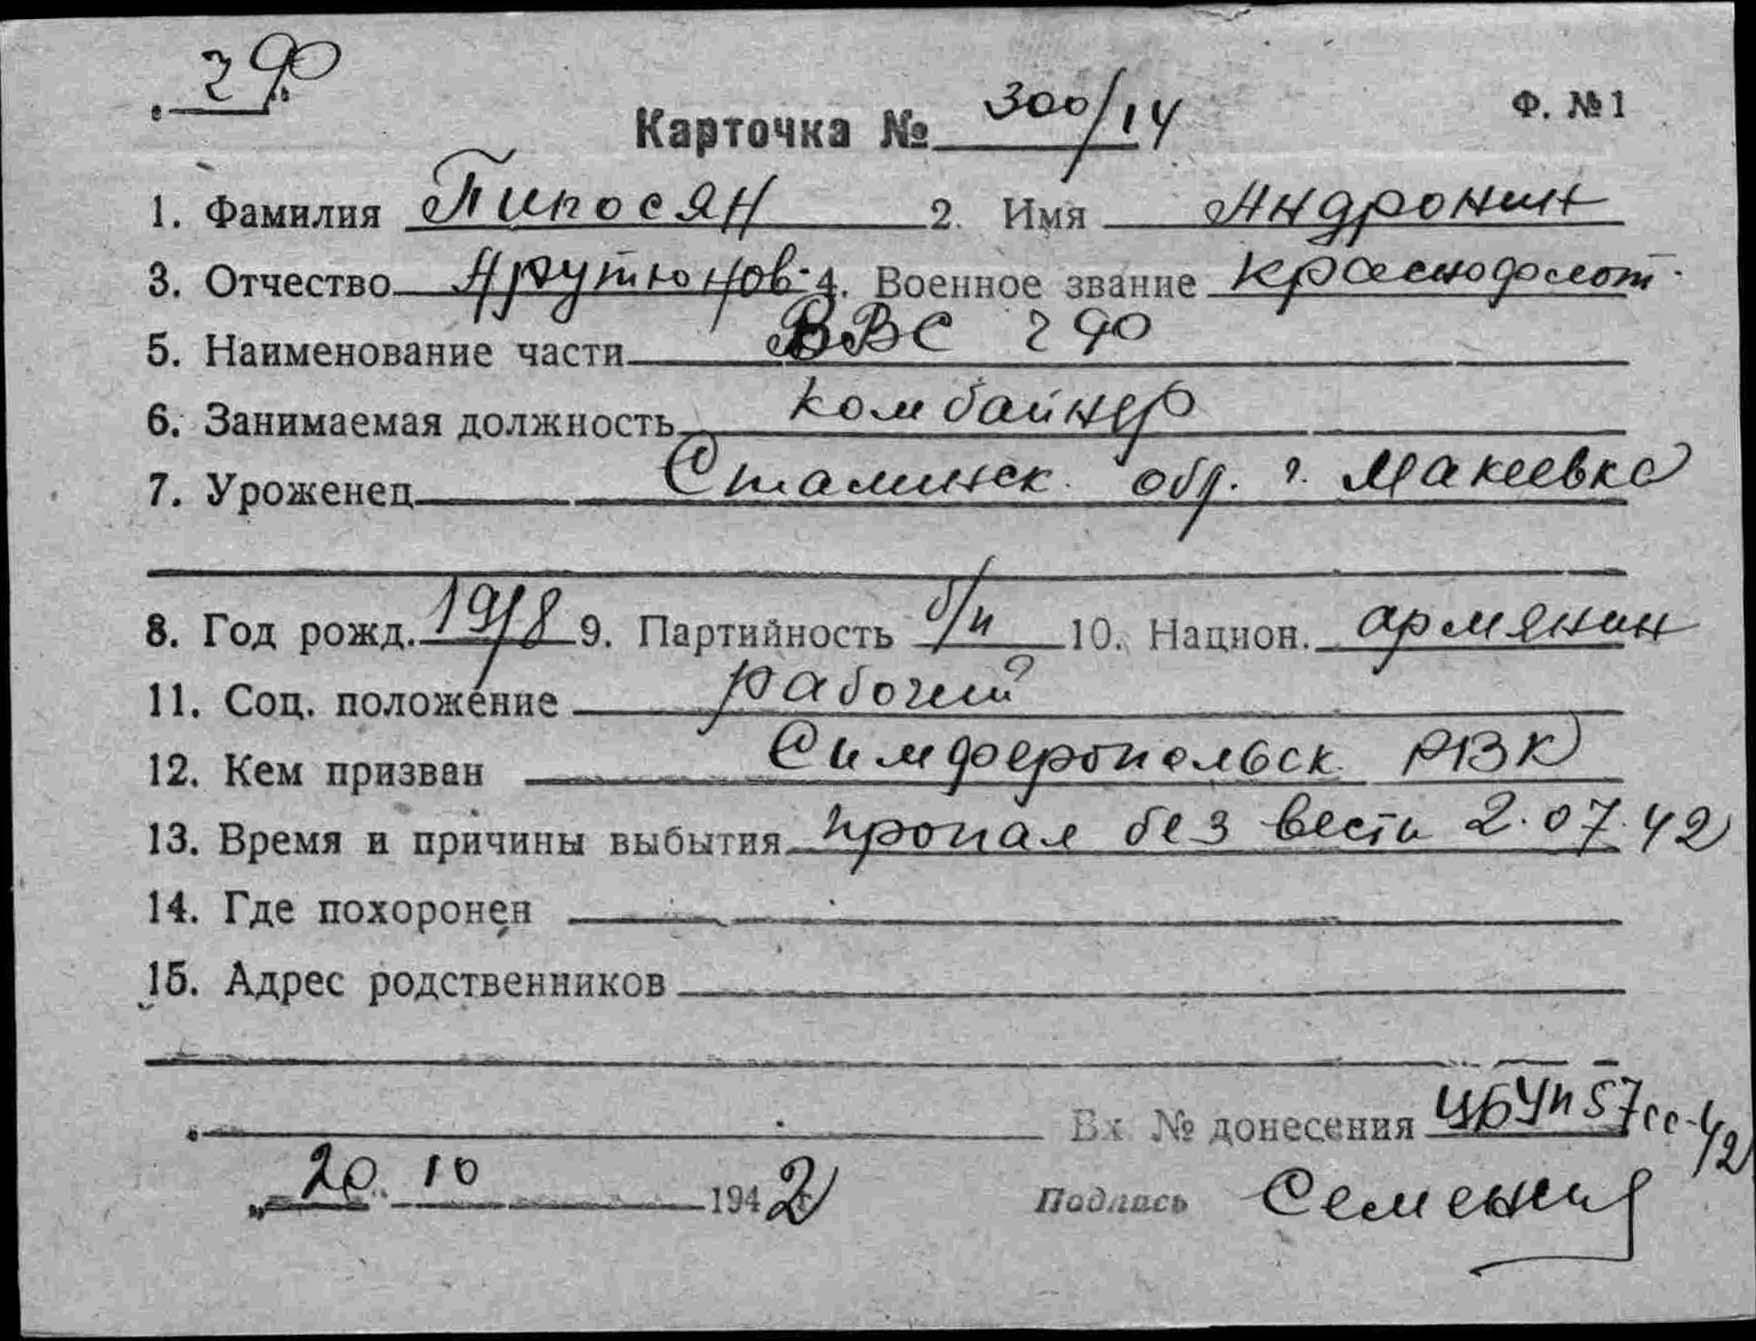 Карточка № 300/14
Ф. №1
1. Фамилия Пипосян 2. Имя Андроник
3. Отчество Арутюнов. 4. Военное звание краснофлот.
5. Наименование части ВВС ЧФ
6. Занимаемая должность комбайнер
7. Уроженец Сталинск. обл. г. Макеевка
8. Год рожд. 1918 9. Партийность б/п 10. Национ. армянин
11. Соц. положение рабочий
12. Кем призван Симферопольск. РВК
13. Время и причины выбытия пропал без вести 2.07.42
14. Где похоронен
15. Адрес родственников
Вх № донесения 57сс-42
„20" 10 1942
Подпись